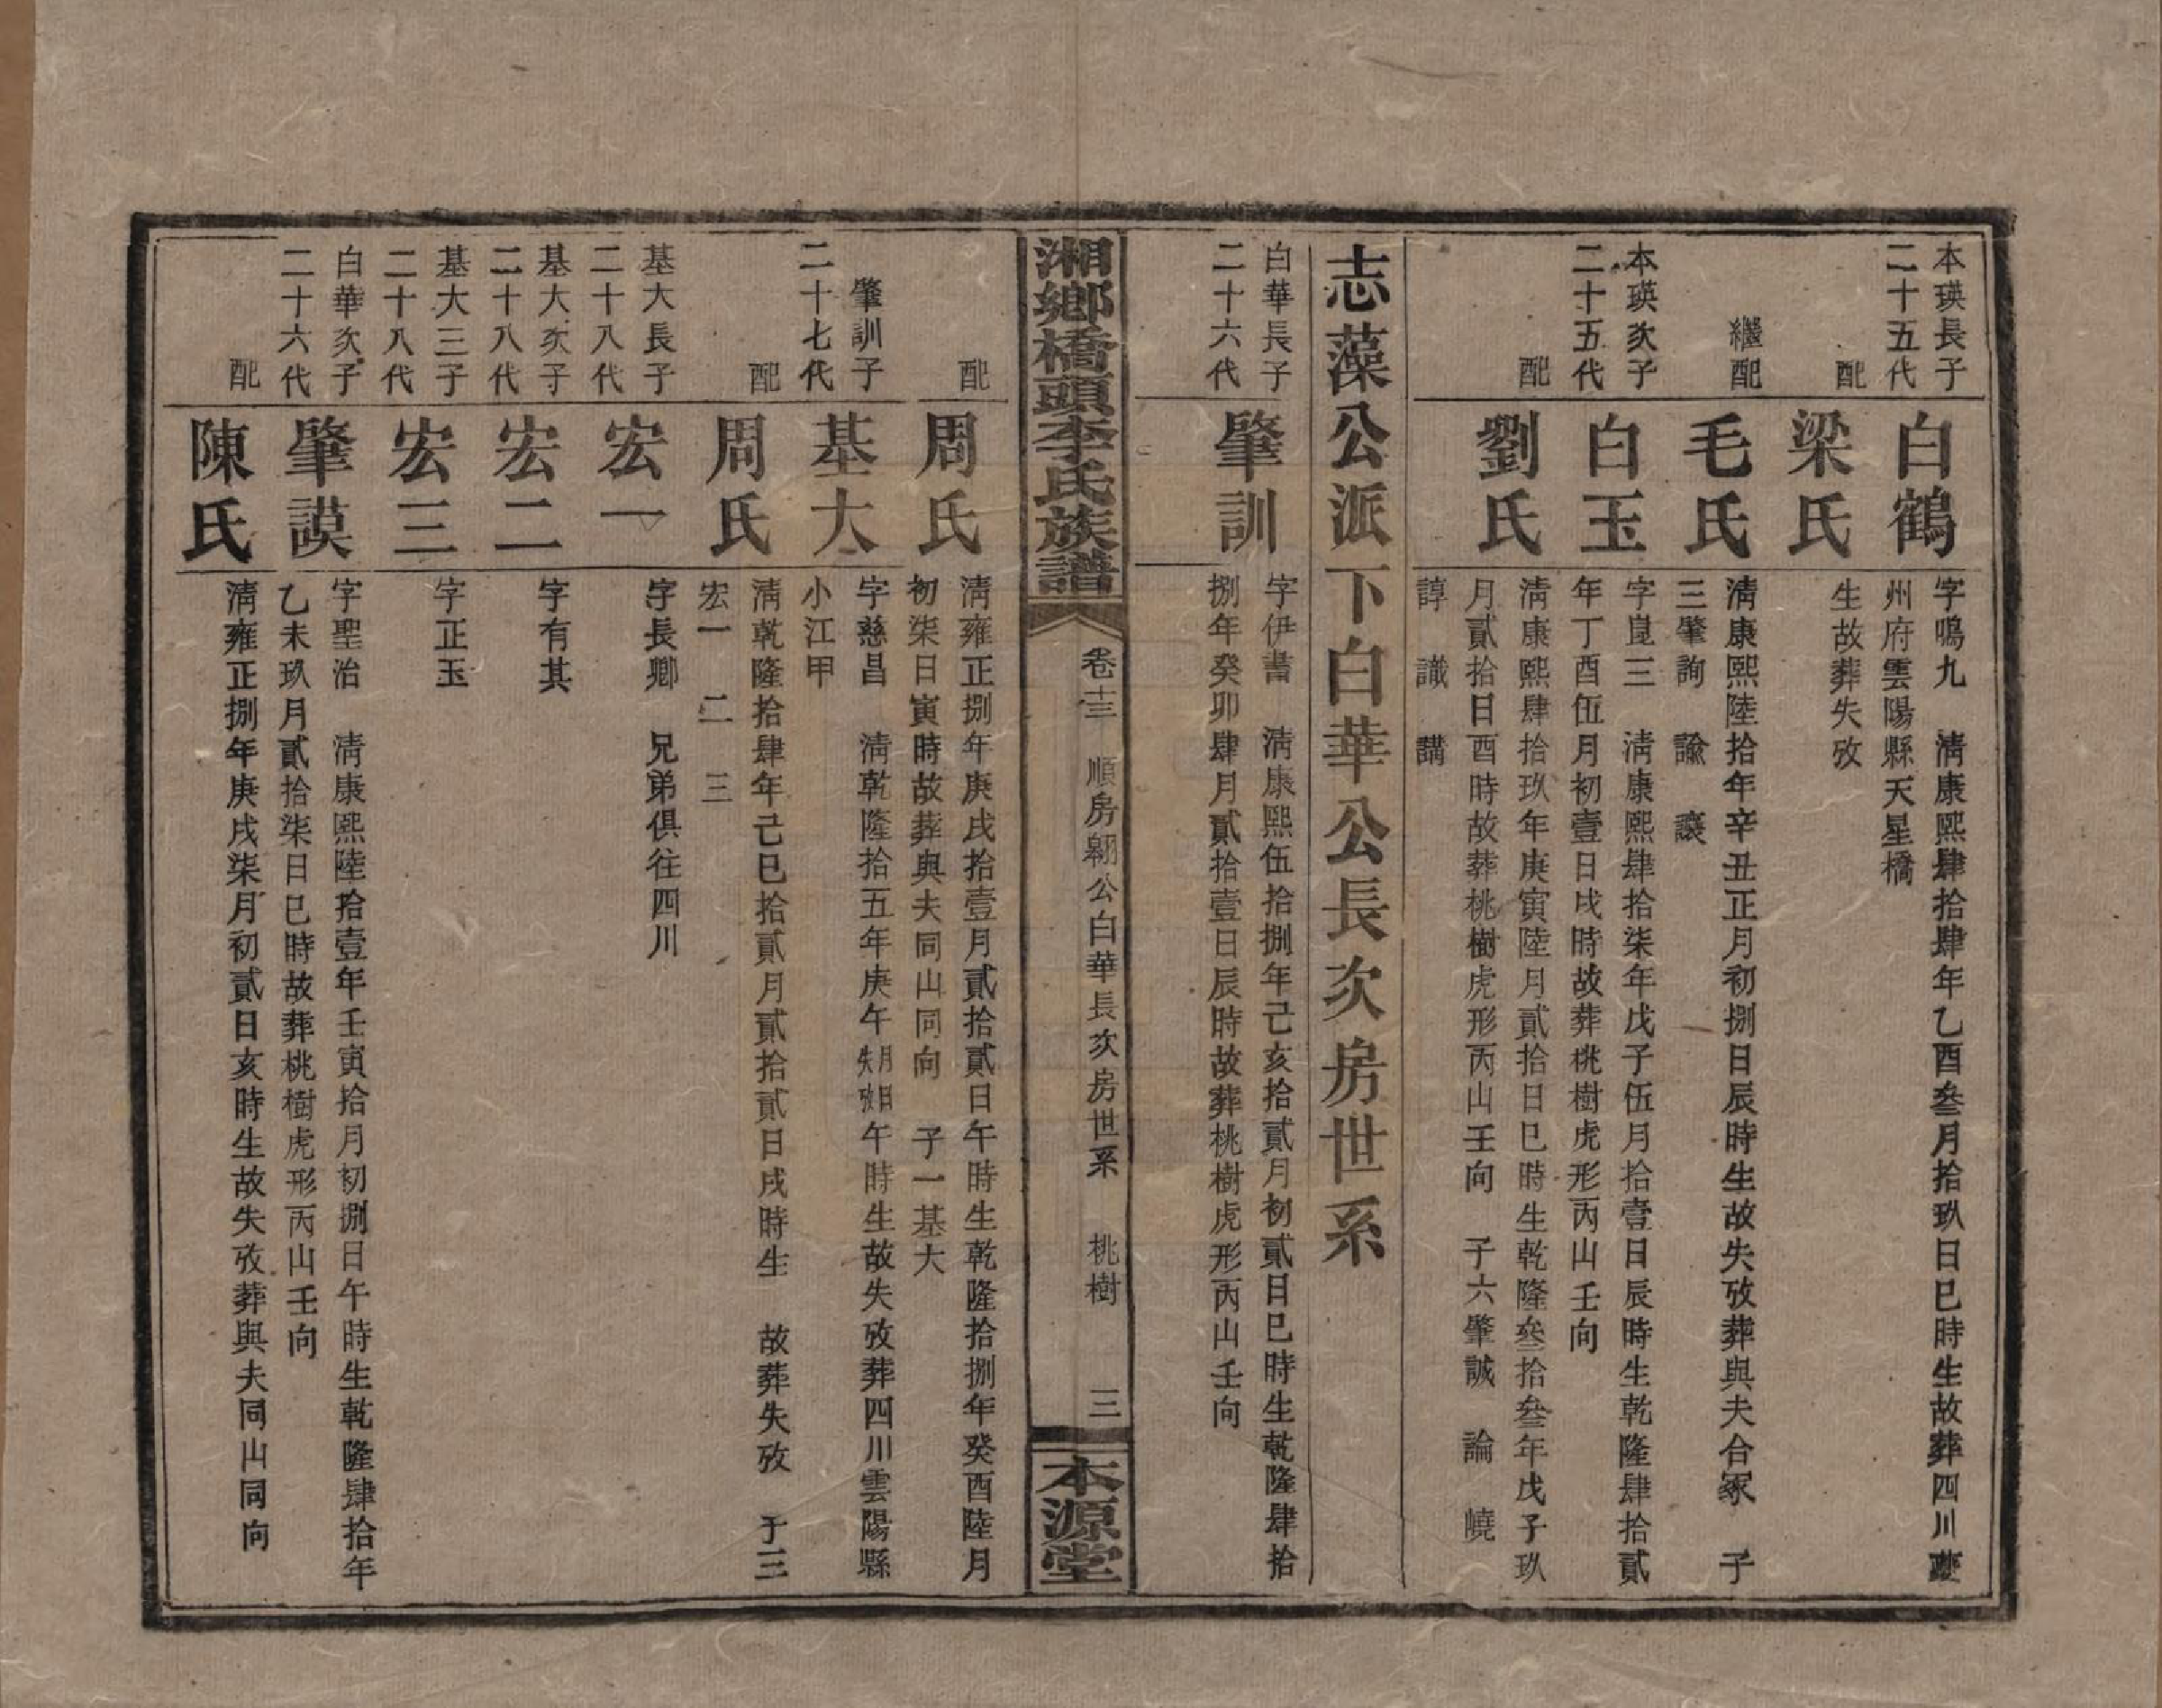 本瑛長子
二十五代
白鶴
字鳴九　淸康熙肆拾肆年乙酉叄月拾玖日巳時生故葬四川夔
州府雲陽縣天星橋
配
梁氏
生故葬失攷
繼配
毛氏
淸康熙陸拾年辛丑正月初捌日辰時生故失攷葬與夫合冢　子
三肇詢　諭　讓
本瑛次子
二十五代
白玉
字崑三　淸康熙肆拾柒年戊子伍月拾壹日辰時生乾隆肆拾貳
年丁酉伍月初壹日戌時故葬桃樹虎形丙山壬向
配
劉氏
淸康熙肆拾玖年庚寅陸月貳拾日巳時生乾隆叄拾叄年戊子玖
月貳拾日酉時故葬桃樹虎形丙山壬向　子六肇誠　論　嶢
諄　識　講
志藻公派下白華公長次房世系
白華長子
二十六代
肇訓
字伊書　淸康熙伍拾捌年己亥拾貳月初貳日巳時生乾隆肆拾
捌年癸卯肆月貳拾壹日辰時故葬桃樹虎形丙山壬向
湘鄉橋頭李氏族譜
卷十三　順房翱公白華長次房世系　桃樹　三
本源堂
配
周氏
淸雍正捌年庚戌拾壹月貳拾貳日午時生乾隆拾捌年癸酉陸月
初柒日寅時故葬與夫同山同向　子一基大
肇訓子
二十七代
基大
字慈昌　淸乾隆拾五年庚午月日失攷午時生故失攷葬四川雲陽縣
小江甲
配
周氏
淸乾隆拾肆年己巳拾貳月貳拾貳日戌時生　故葬失攷　子三
宏一　二　三
基大長子
二十八代
宏一
字長卿　兄弟俱往四川
基大次子
二十八代
宏二
字有其
基大三子
二十八代
宏三
字正玉
白華次子
二十六代
肇謨
字聖治　淸康熙陸拾壹年壬寅拾月初捌日午時生乾隆肆拾年
乙未玖月貳拾柒日巳時故葬桃樹虎形丙山壬向
配
陳氏
淸雍正捌年庚戌柒月初貳日亥時生故失攷葬與夫同山同向